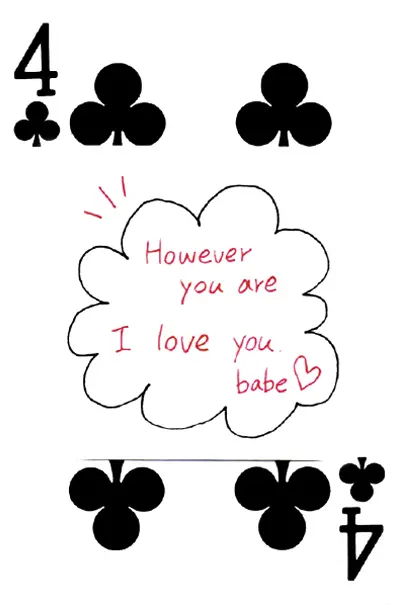 4
However
you are
I love you.
babe♡
4